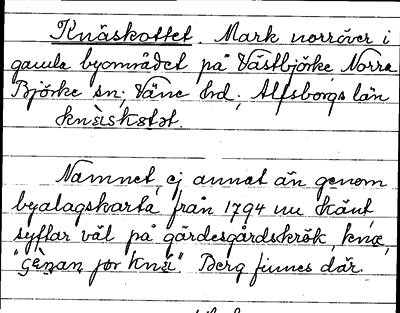 Knäskottet. Mark norröver i
gamla byområdet på Västbjörke Norra
Björke sn; Väne hd; Älfsborgs län
knäiskɵtət.
Namnet, ej annat än genom
byalagskarta från 1794 nu känt,
syftar väl på gärdesgårdskrök, knæ,
Berg finnes där.